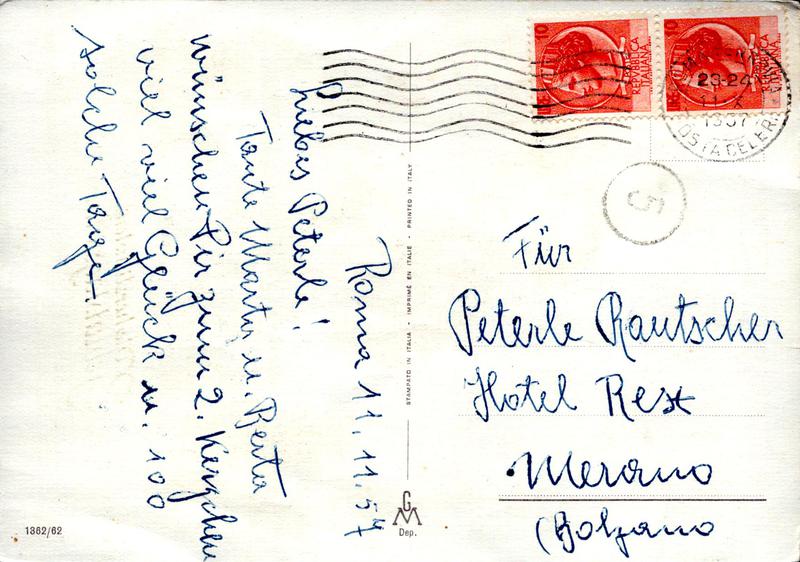 Roma 11. 11. 57
Liebes Peterle!
Tante Marta u. Berta
wünschen Dir zum 2. Kerzchen
viel viel Glück u. 100
solche Tage.
10
REPVBBLICA
ITALIANA
10
REPVBBLICA
ITALIANA
23-24
1957
POSTA CELERE
5
Für
Peterle Rautscher
Hotel Rex
Merano
(Bolzano
STAMPATO IN ITALIA - IMPRIMÉ EN ITALIE - PRINTED IN ITALY
GM
Dep.
1362/62